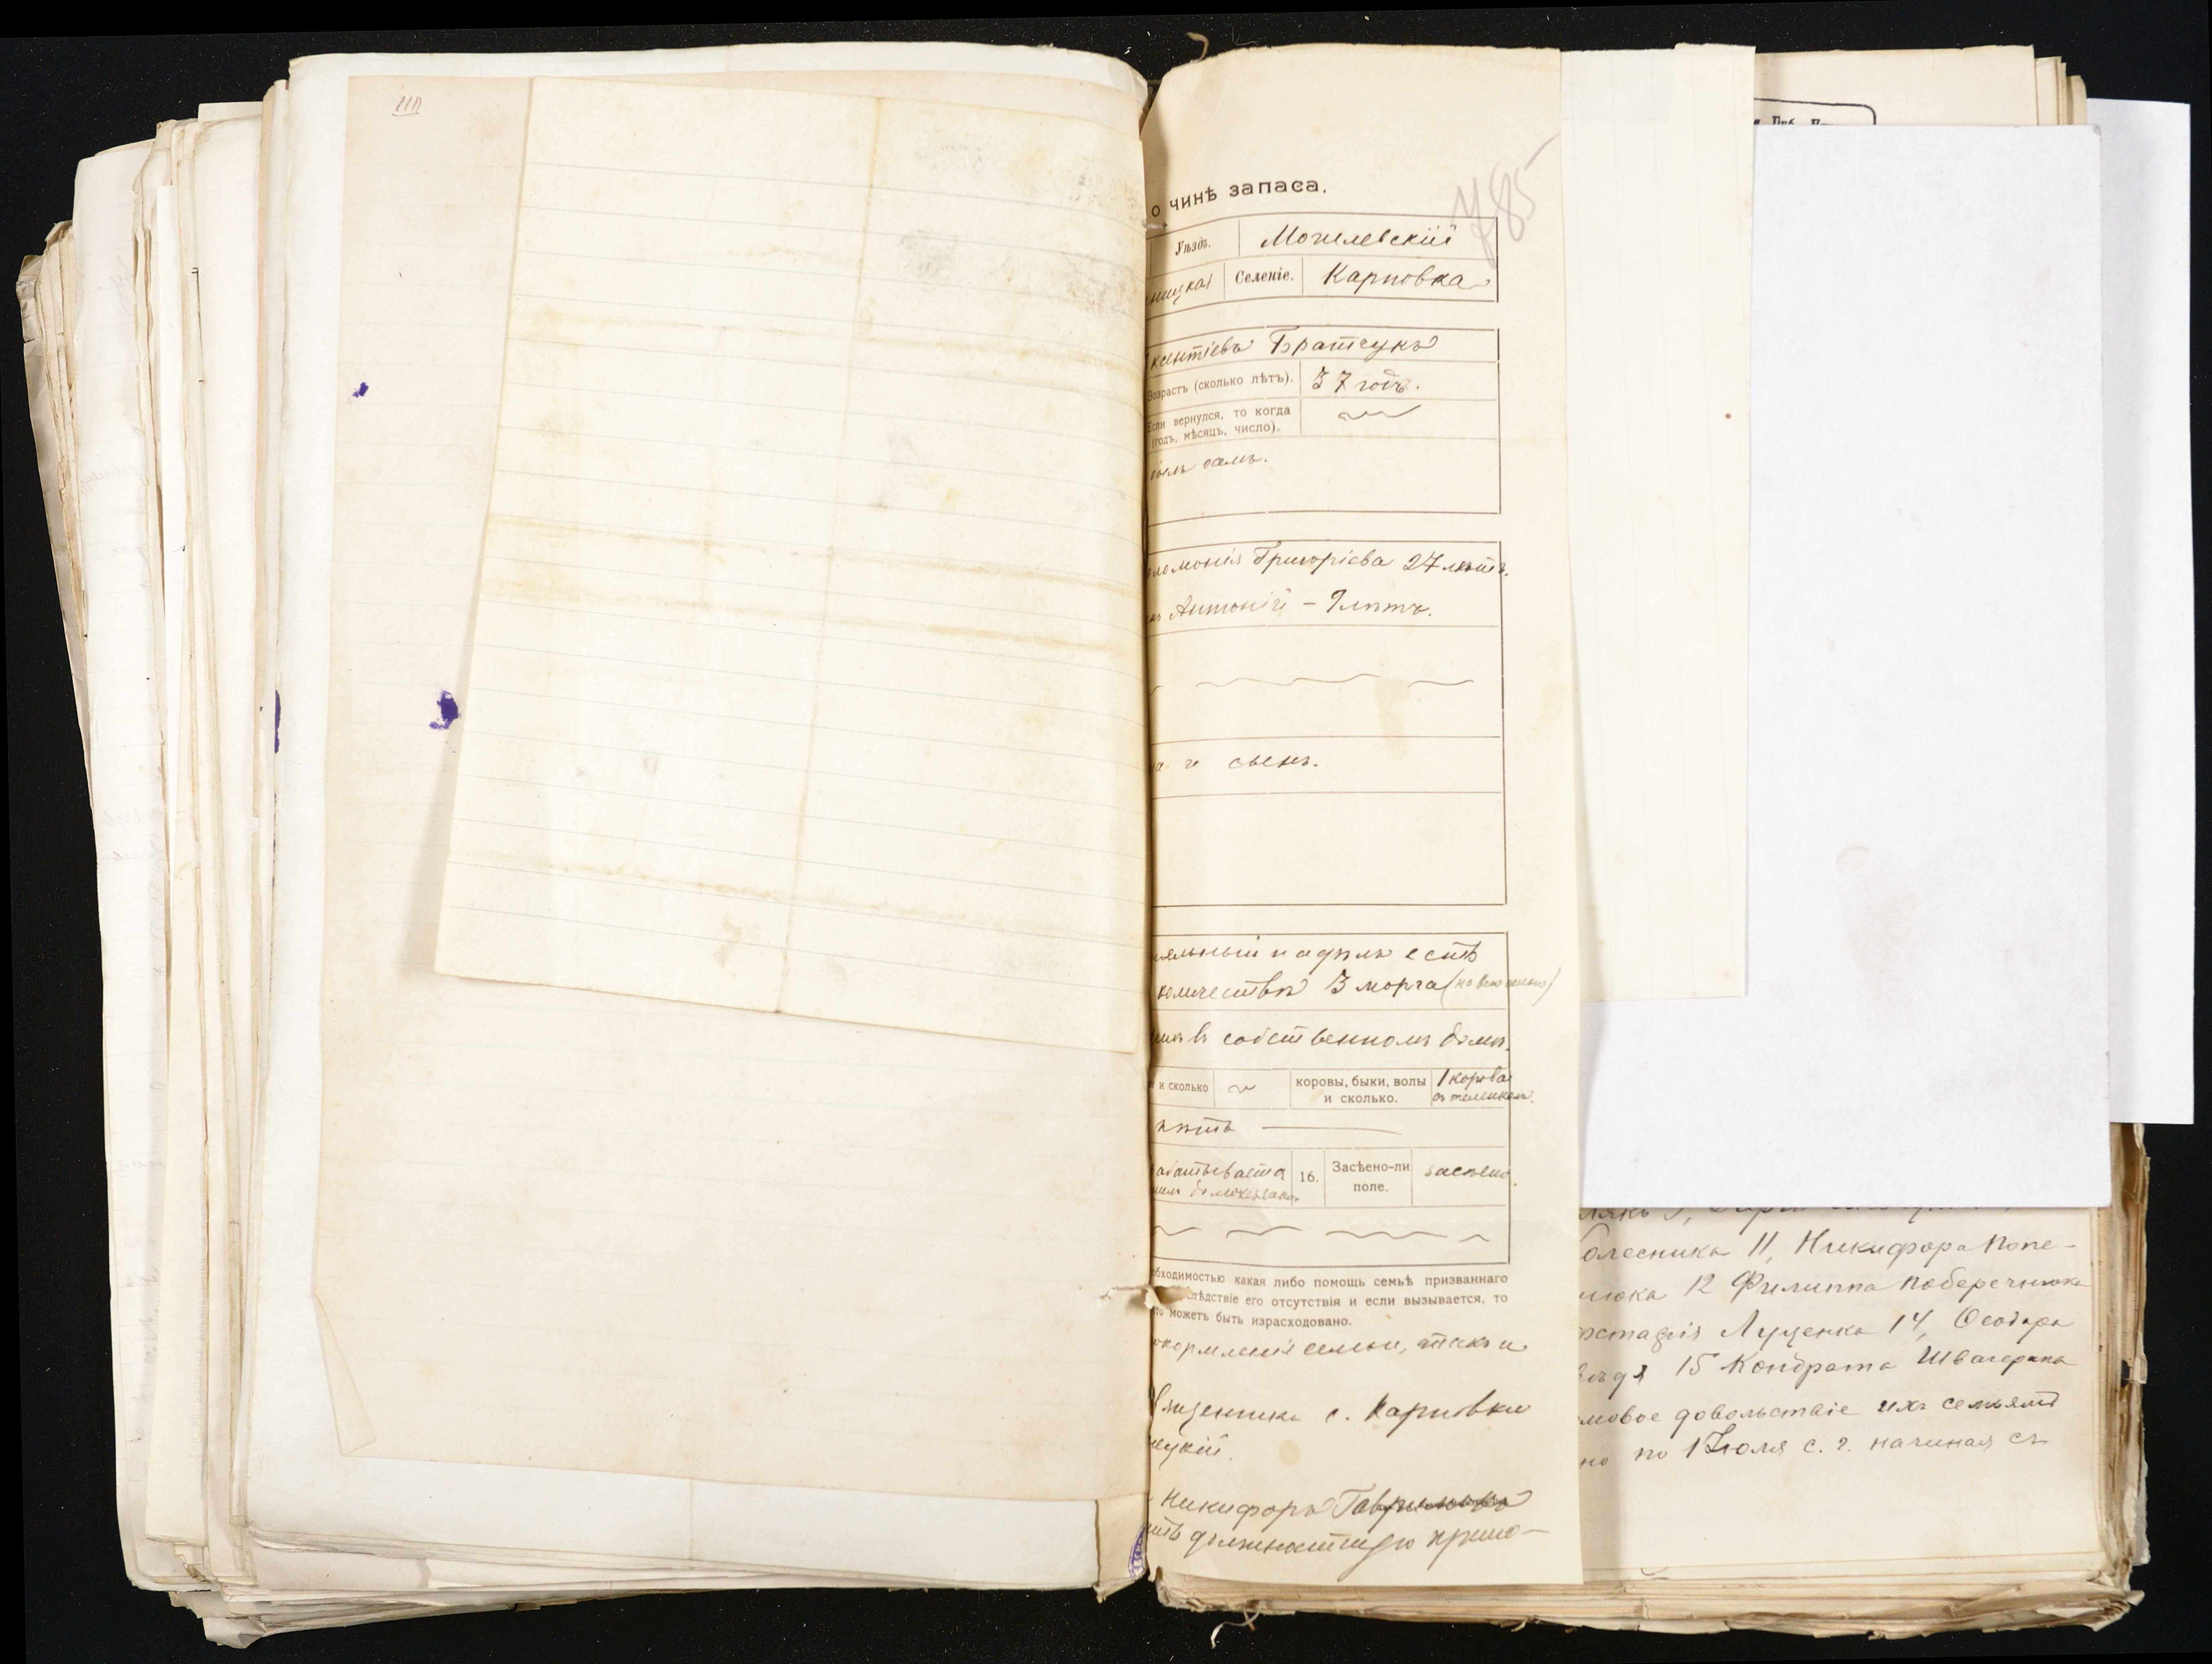 785
о чинѣ запаса.
Уѣздъ. Могилевскій
ницкая Селеніе. Карповка
ксентіевъ Братчукъ
Возрастъ (сколько лѣтъ). 37 годъ.
Если вернулся, то когда
(годъ, мѣсяцъ, число).
самъ.
ломонія Григорієва 27 лѣтъ.
Антоній – 9 лѣтъ.
а и сынъ.
надѣлъ есть
количествѣ 3 морга (на всю семью)
въ собственномъ домѣ.
и сколько коровы, быки, волы 1 корова
и сколько. съ теленкомъ.
нѣтъ
абатывается 16. Засѣено-ли засѣено.
поле.
обходимостью какая либо помощь семьѣ призваннаго
лѣдствіе его отсутствія и если вызывается, то
то можетъ быть израсходовано.
окормленія семьи, такъ и
Священника с. Карповки
ецкій.
Никифоръ Гаврилюкъ
должностную
олесника 11, Никифора Попе-
люка 12 Филиппа Поберечнюка
Луценка 14, Ѳеодора
15 Кондрата Швагерака
мовое довольствіе ихъ семьямъ
но по 1 Іюля с. г. начиная съ